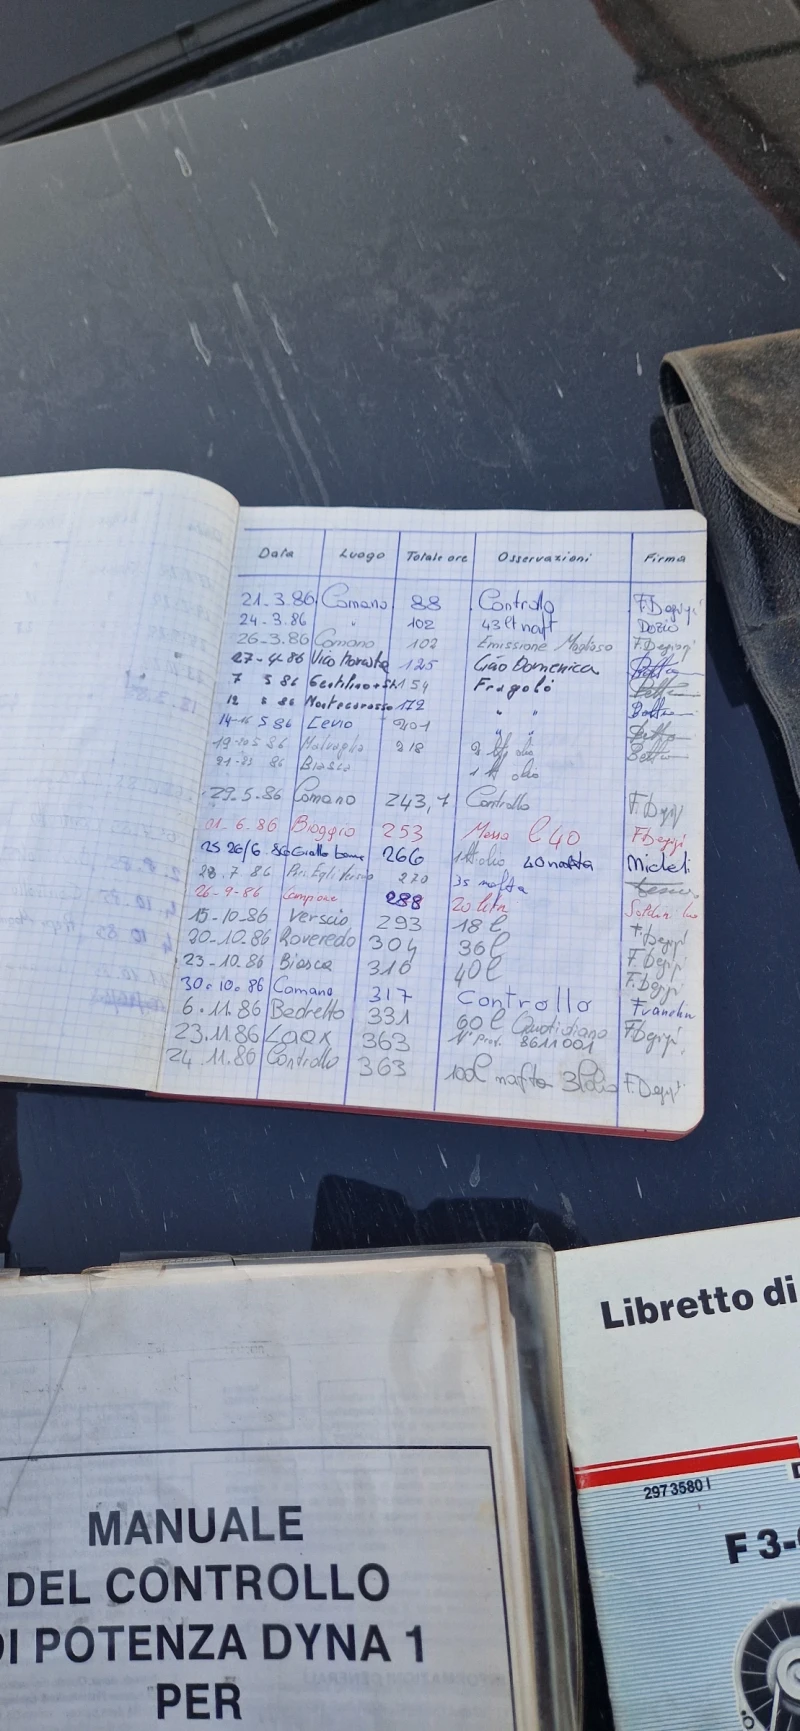 Data Luogo Totale ore Osservazioni Firma
21-3.86 Comano 88 Controllo F. Degiorgi
24-3.86 " 102 43 lt naft Dozio
26-3.86 Comano 102 Emissione F. Degiorgi
27-4-86 Vico Morcote 125 Gao Domenica
7 5 86 Gentilino 154 Fragolé
12 5 86 Montecarasso 172 " "
14-16 5 86 Cevio 201 " "
19-20 5 86 Malvaglia 218 2 lt olio
21-23 86 Biasca 1 lt olio
29.5.86 Comano 243,7 Controllo
01-6.86 Bioggio 253 Messa l 40
25 26/6.86 266 1 lt olio 40 nafta Micheli
28.7.86 270 35 nafta
26-9-86 Campione 288 20 litri
15-10-86 Verscio 293 18 l
20-10.86 Roveredo 304 36 l
23-10.86 Biasca 316 40 l
30.10.86 Comano 317 Controllo Franchin
6.11.86 Bedretto 331 60 l Quotidiano
N° Prot. 8611001
23.11.86 Laax 363
24.11.86 Controllo 363 100l nafta 3l olio
Libretto di
2973580 I
F 3-
MANUALE
DEL CONTROLLO
DI POTENZA DYNA 1
PER